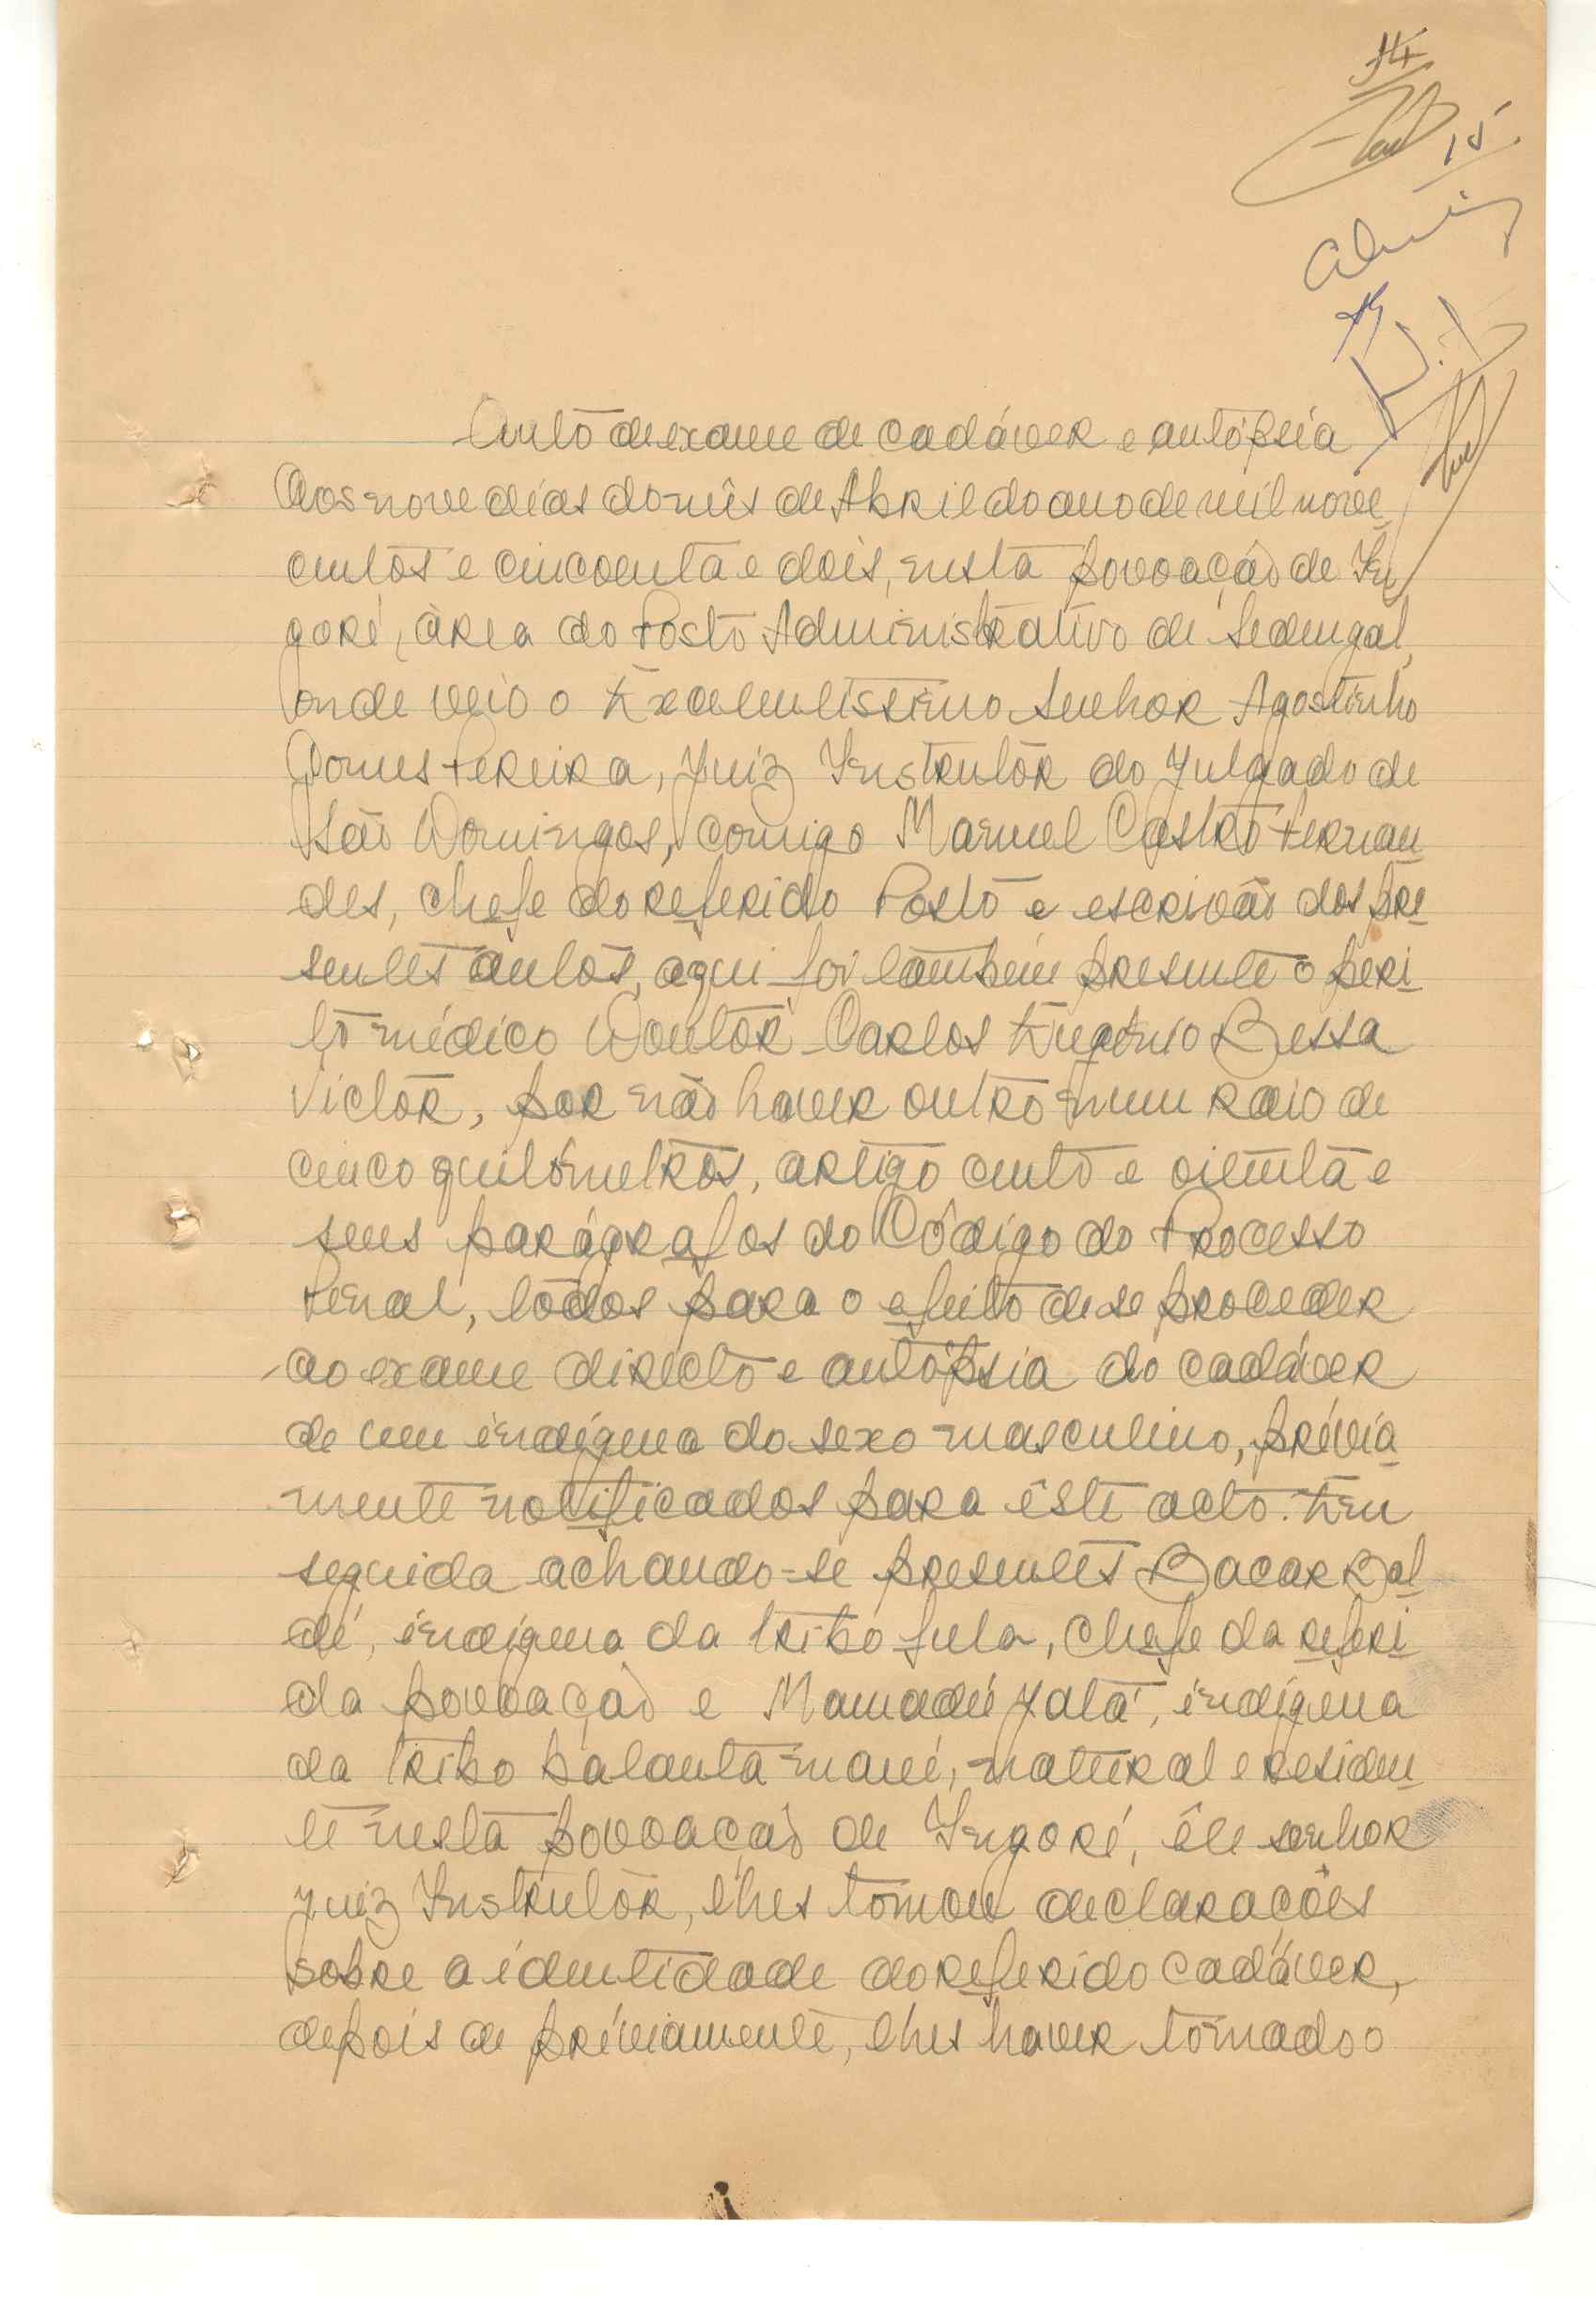 14
15
Auto de exame de cadáver e autópsia
Aos nove dias do mês de Abril do ano de mil nove
centos e cincoenta e dois, nesta povoação de In
goré, área do Posto Administrativo de Sedengal,
onde veio o Excelentíssimo Senhor Agostinho
Gomes Pereira, Juiz Instrutor do Julgado de
São Domingos, comigo Manuel Castro Fernan
des, chefe do referido Posto e escrivão dos pre
sentes autos, aqui foi também presente o peri
to médico Doutor Carlos Eugénio Bessa
Victor, por não haver outro num raio de
cinco quilómetros, artigo cento e oitenta e
seus parágrafos do Código do Processo
Penal, todos para o efeito de se proceder
ao exame directo e autópsia do cadáver
de um indígena do sexo masculino, prévia
mente notificados para êste acto. Em
seguida achando-se presentes Bacar Bal
dé, indígena da tribo fula, chefe da referi
da povoação e Mamadú Jatá, indígena
da tribo balanta mané, natural e residen
te nesta povoação de Ingoré, êle senhor
Juiz Instrutor, lhes tomou declarações
sobre a identidade do referido cadáver,
depois de préviamente, lhes haver tomado o